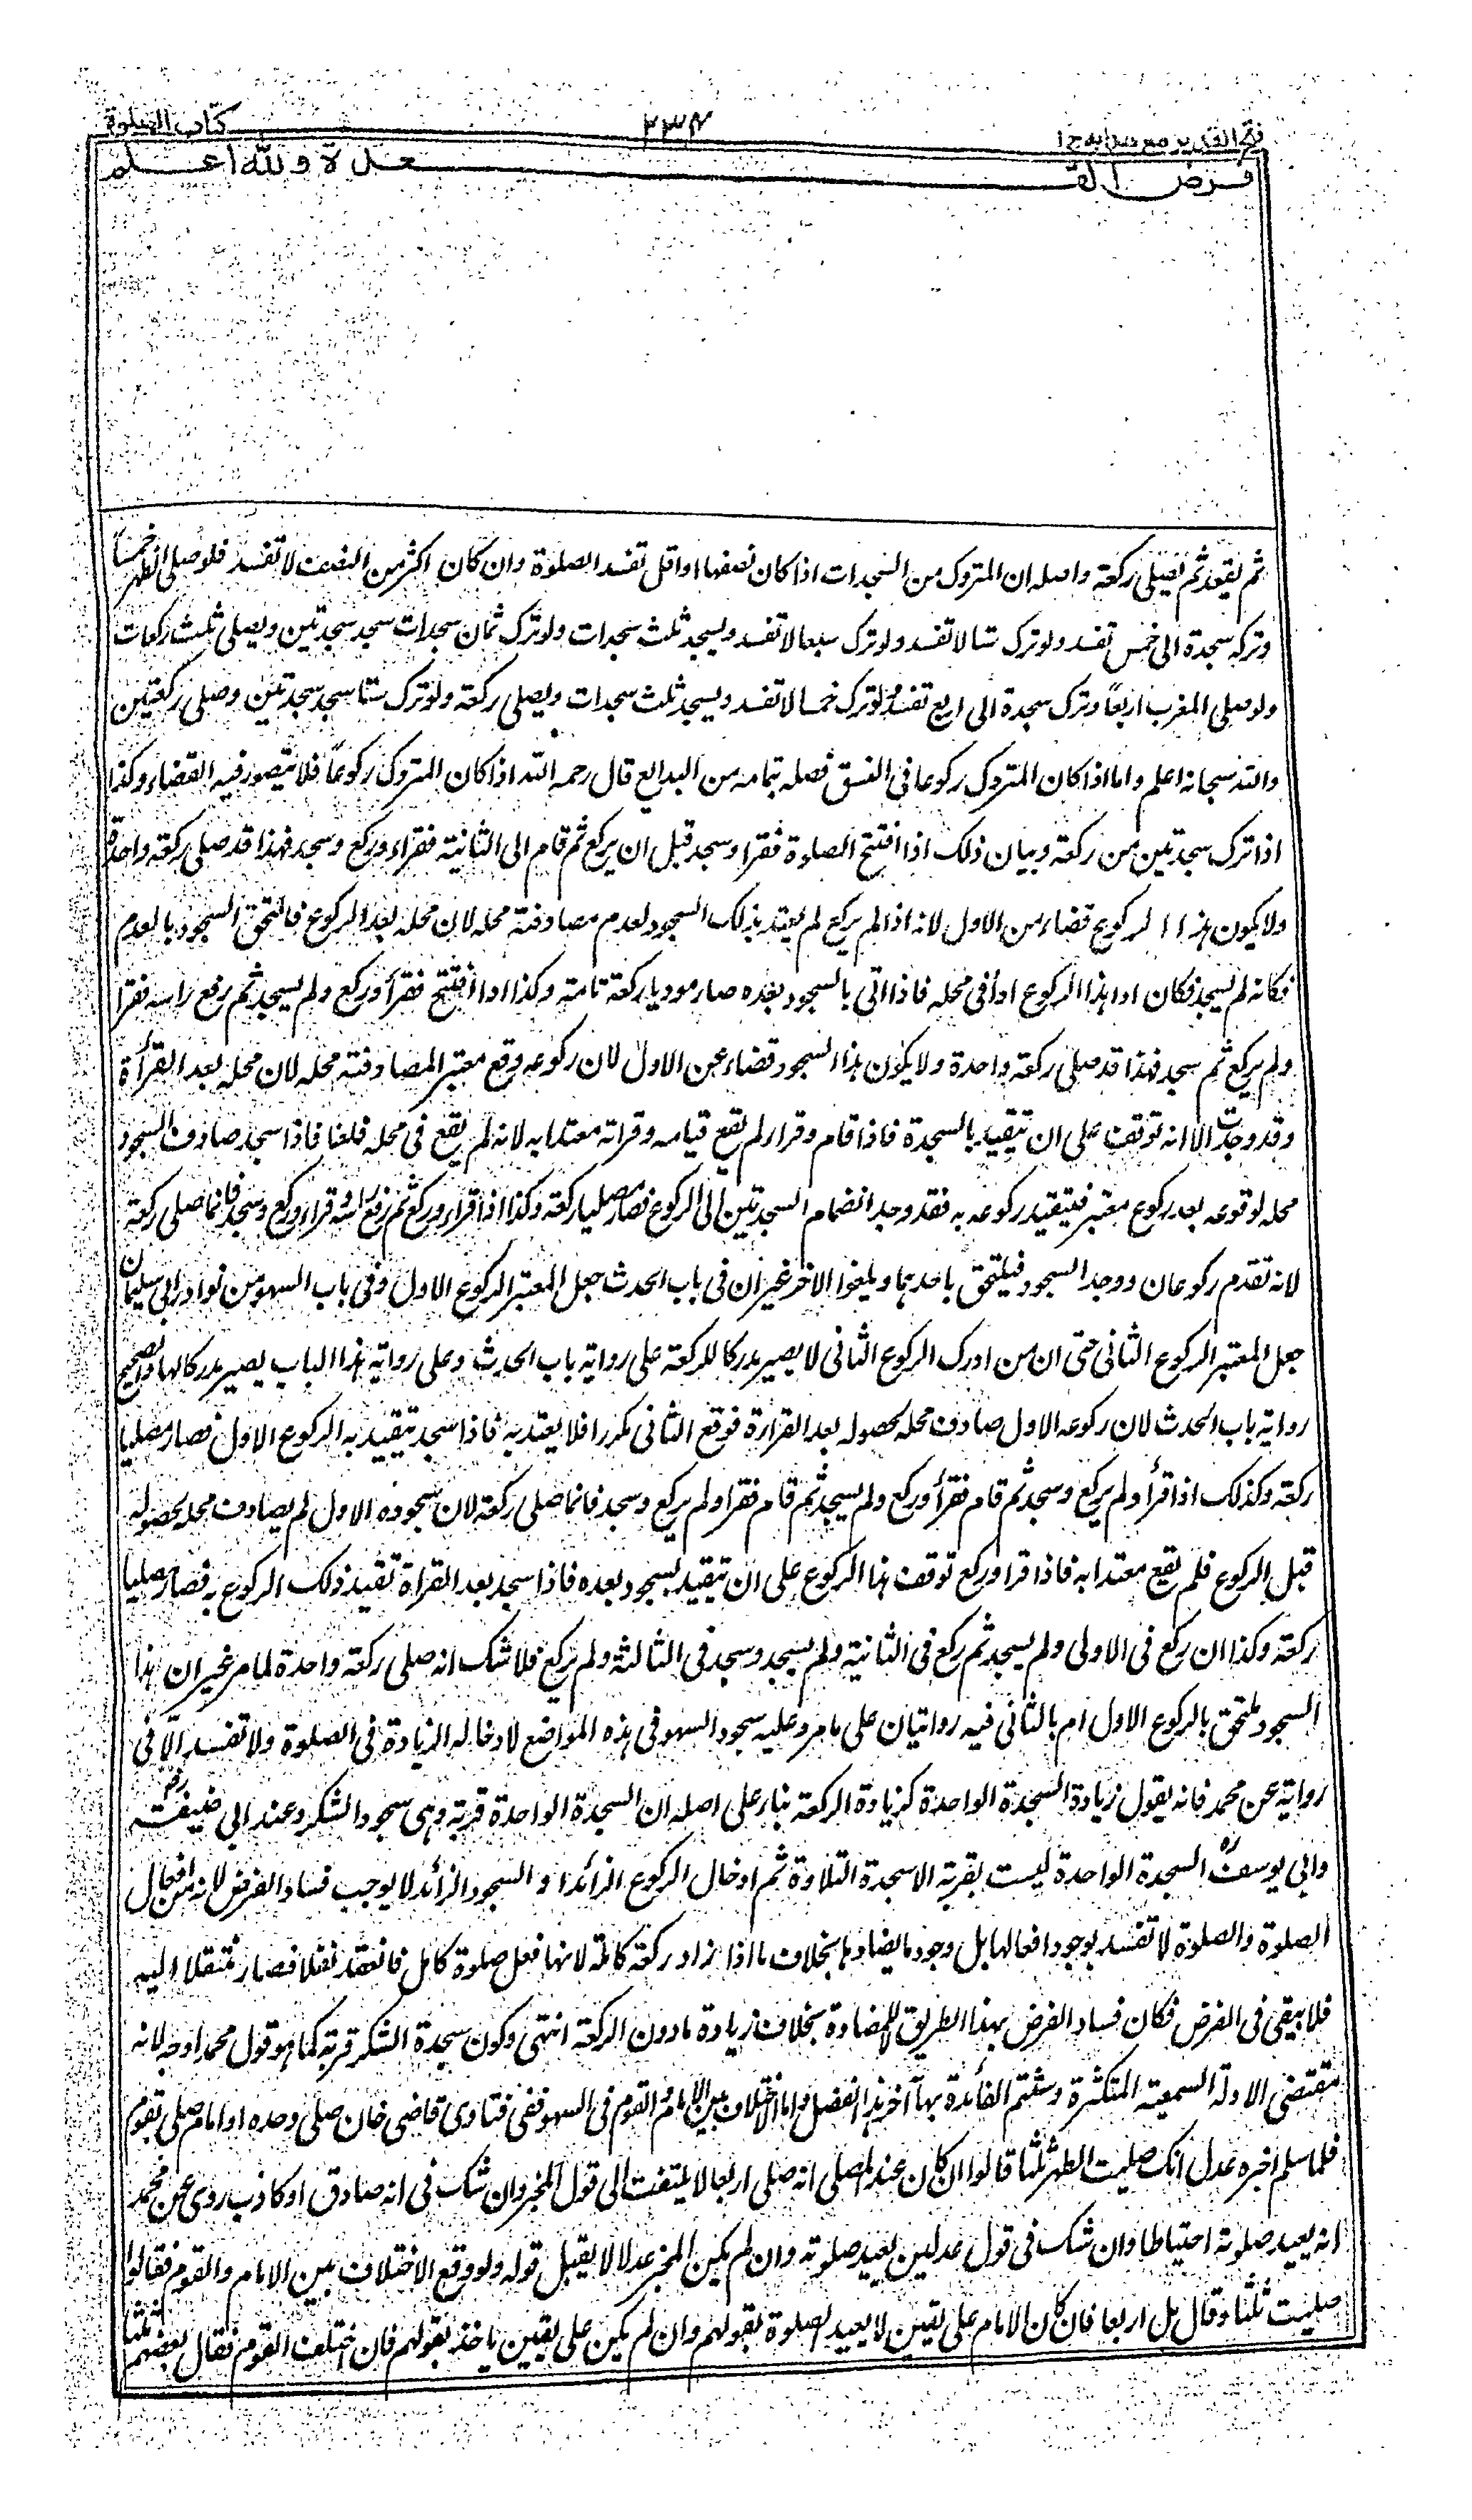 فتح القدير مع هدايه ج ١ ٢٣٤ كتاب الصلوة
فرض القعدة والله اعلم
ثم يقعد ثم يصلي ركعة واصله ان المتروك من السجدات اذا كان نصفها او اقل تفسد الصلوة وان كان اكثر من النصف لا تفسد فلو صلى الظهر خمساً
وترك سجدة الى خمس تفسد ولو ترك ستا لا تفسد ولو ترك سبعا لا تفسد ويسجد ثلث سجدات ولو ترك ثمان سجدات سجد سجدتين ويصلي ثلث ركعات
ولو صلى المغرب اربعاً وترك سجدة الى اربع تفسد ولو ترك خمسا لا تفسد ويسجد ثلث سجدات ويصلي ركعة ولو ترك ستا سجد سجدتين وصلى ركعتين
والله سبحانه اعلم واما اذا كان المتروك ركوعا فى النسق فصله بتمامه من البدايع قال رحمه الله اذا كان المتروك ركوعاً فلا يتصور فيه القضاء وكذا
اذا ترك سجدتين من ركعة وبيان ذلك اذا افتتح الصلوة فقرا وسجد قبل ان يركع ثم قام الى الثانية فقراء وركع وسجد فهذا قد صلى ركعة واحدة
ولا يكون هذا الركوع قضاء من الاول لانه اذا لم يركع لم يعتد بذلك السجود لعدم مصادفته محله لان محله بعد الركوع فالتحق السجود بالعدم
فكانه لم يسجد فكان ادا هذا الركوع اداً فى محله فاذا اتى بالسجود بعده صار موديا ركعة تامة وكذا اذا افتتح فقرأ وركع ولم يسجد ثم رفع راسه فقرا
ولم يركع ثم سجد فهذا قد صلى ركعة واحدة ولا يكون هذا السجود قضاء عن الاول لان ركوعه وقع معتبر المصادفته محله لان محله بعد القرأة
وقد وجدت الا انه توقف على ان يتقيد بالسجدة فاذا قام وقرا لم يقع قيامه وقراته معتدا به لانه لم يقع فى محله فلغا فاذا سجد صادف السجود
محله لوقوعه بعد ركوع معتبر فيتقيد ركوعه به فقد وجد انضمام السجدتين الى الركوع فصار مصليا ركعة وكذا اذا قراء وركع ثم رفع راسه وقراء وركع وسجد فانما صلى ركعة
لانه تقدم ركوعان ووجد السجود فيلتحق باحدهما ويلغوا الاخر غير ان فى باب الحدث جعل المعتبر الركوع الاول وفى باب السهو من نوادر ابى سليمان
جعل المعتبر الركوع الثانى حتى ان من ادرك الركوع الثانى لا يصير مدركا للركعة على رواية باب الحدث وعلى رواية هذا الباب يصير مدركا لها والصحيح
رواية باب الحدث لان ركوعه الاول صادف محله لحصوله بعد القراءة فوقع الثانى مكررا فلا يعتد به فاذا سجد يتقيد به الركوع الاول فصار مصليا
ركعة وكذلك اذا قرأ ولم يركع وسجد ثم قام فقرأ وركع ولم يسجد ثم قام فقرا ولم يركع وسجد فانما صلى ركعة لان سجوده الاول لم يصادف محله لحصوله
قبل الركوع فلم يقع معتدا به فاذا قرا وركع توقف هذا الركوع على ان يتقيد بسجود بعده فاذا سجد بعد القراة تقيد ذلك الركوع به فصار مصليا
ركعة وكذا ان ركع فى الاولى ولم يسجد ثم ركع فى الثانية ولم يسجد وسجد فى الثالثة ولم يركع فلا شك انه صلى ركعة واحدة لما مر غير ان هذا
السجود ملتحق بالركوع الاول ام بالثانى فيه روايتان على ما مر وعليه سجود السهو فى هذه المواضع لادخاله الزيادة فى الصلوة ولا تفسد الا فى
رواية عن محمد فانه يقول زيادة السجدة الواحدة كزيادة الركعة بناء على اصله ان السجدة الواحدة قربة وهى سجود الشكر وعند ابي حنيفة
وابي يوسف السجدة الواحدة ليست بقربة الا سجدة التلاوة ثم ادخال الركوع الزائد او السجود الزائد لا يوجب فساد الفرض لانه من افعال
الصلوة والصلوة لا تفسد بوجود افعالها بل وجود ما يضادها بخلاف ما اذا زاد ركعة كاملة لانها فعل صلوة كامل فانعقد نفلا فصار منتقلا اليه
فلا يبقى فى الفرض فكان فساد الفرض بهذا الطريق لا للمضادة بخلاف زيادة ما دون الركعة انتهى وكون سجدة الشكر قربة كما هو قول محمد اوجه لانه
مقتضى الادلة السمعية المتكثرة وستتم الفائدة بها آخر هذا الفصل واما الاختلاف بين الامام والقوم فى السهو ففى فتاوى قاضى خان صلى وحده او امام صلى بقوم
فلما سلم اخبره عدل انك صليت الظهر ثلثا قالوا ان كان عند المصلى انه صلى اربعا لا يلتفت الى قول المخبر وان شك فى انه صادق او كاذب روى عن محمد
انه يعيد صلوته احتياطا وان شك فى قول عدلين يعيد صلوته وان لم يكن المخبر عدلا لا يقبل قوله ولو وقع الاختلاف بين الامام والقوم فقالوا
صليت ثلثا وقال بل اربعا فان كان الامام على يقين لا يعيد الصلوة بقولهم وان لم يكن على يقين ياخذ بقولهم فان اختلف القوم فقال بعضهم ثلثا